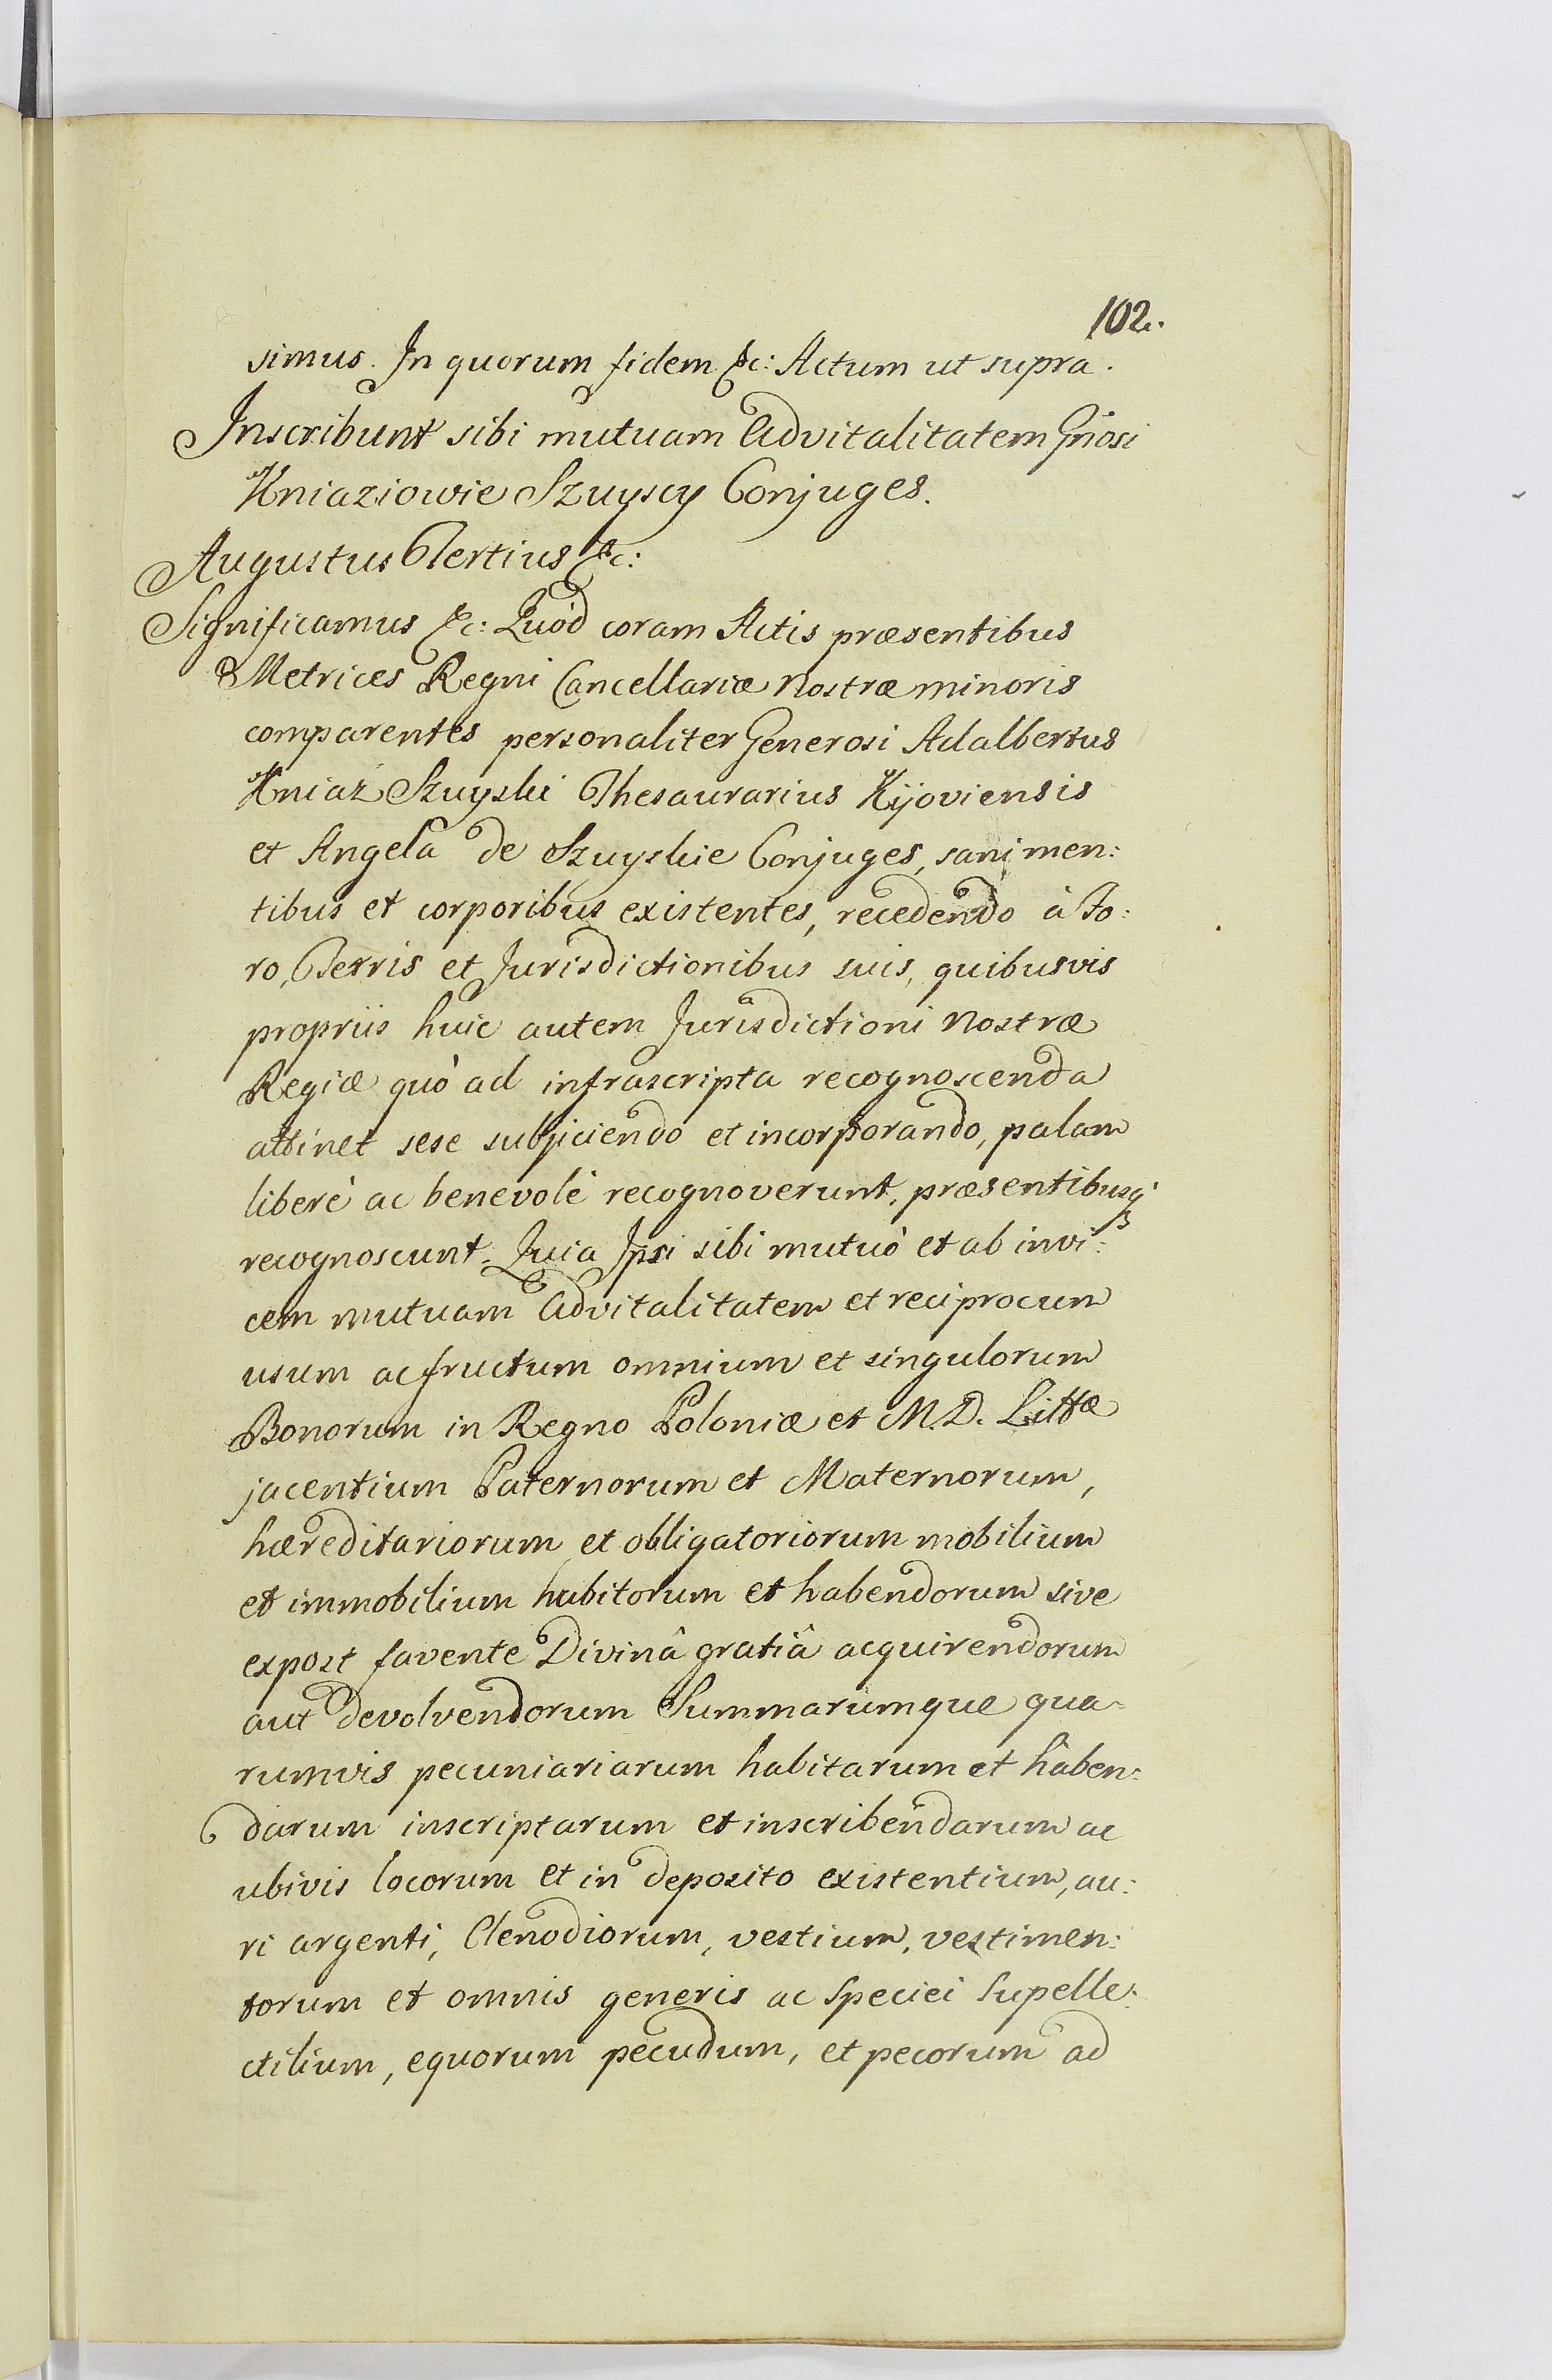 102.
simus. In quorum fidem &c: Actum ut supra.
Inscribunt sibi mutuam Advitalitatem Gnosi
Kniaziowie Szuyscy Conjuges.
Augustus Tertius &c:
Significamus &c: Quòd coram Actis præsentibus
Metrices Regni Cancellariæ Nostræ minoris
comparentes personaliter Generosi Adalbertus
Kniaź Szuyski Thesaurarius Kijoviensis
et Angela de Szuyskie Conjuges, sani men:
tibus et corporibus existentes, recedendo à Fo:
ro, Terris et Jurisdictionibus suis, quibusvis
propriis huic autem Jurisdictioni Nostræ
Regiæ quò ad infrascripta recognoscenda
attinet sese subjiciendo et incorporando, palam
liberè ac benevolè recognoverunt, præsentibusq́
recognoscunt. Quia Ipsi sibi mutuò et ab invi:
cem mutuam Advitalitatem et reciprocum
usum ac fructum omnium et singulorum
Bonorum in Regno Poloniæ et M. D. Littæ
jacentium Paternorum et Maternorum,
hæreditariorum et obligatoriorum mobilium
et immobilium habitorum et habendorum sive
expost favente Divinâ gratiâ acquirendorum
aut devolvendorum Summarumque qua-
rumvis pecuniariarum habitarum et haben:
darum inscriptarum et inscribendarum ac
ubivis locorum et in deposito existentium, au:
ri argenti, Clenodiorum, vestium, vestimen:
torum et omnis generis ac Speciei Supelle:
ctilium, equorum pecudum, et pecorum ad